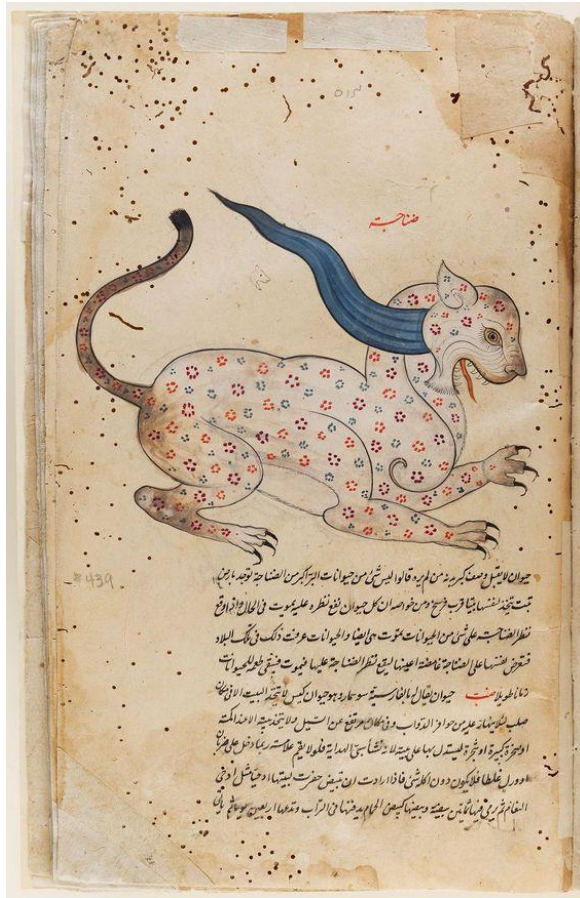 ضناجة
حيوان لا يقبل وصف كبر بدنه من لم يره قالوا ليس شئ من حيوانات البر اكبر من الضناجة توجد بارض
تبت تتخذ لنفسها بيتا قرب فرسخ ومن خواصه ان كل حيوان يقع نظره عليه يموت فى الحال واذا وقع
نظر الضناجة على شئ من الحيوانات يموت هى ايضا والحيوانات عرفت ذلك فى تلك البلاد
فتعرض نفسها على الضناجة غامضة اعينها ليقع نظر الضناجة عليها فيموت فتبقى طعمه للحيوانات
زمانا طويلا ضب حيوان يقال له بالفارسية سوسمار وهو حيوان كيس لا يتخذ البيت الا فى مكان
صلب لئلا ينهار عليه من حوافر الدواب وفى مكان مرتفع عن السيل ولا يتخذ بيته الا عند اكمة
او صخرة كبيرة او شجرة ليستدل بها على بيته لانه نساء سيئ الهداية فلو لا يقم علامته ربما دخل على
او ورل غلطا فلا يكون دون اكله شئ فاذا ارادت ان تبيض حفرت بيتها
ثم يرمى فيها ثمانين بيضة وبيضها كبيض الحمام يدفنها فى التراب وتدعها اربعين يوما
#439